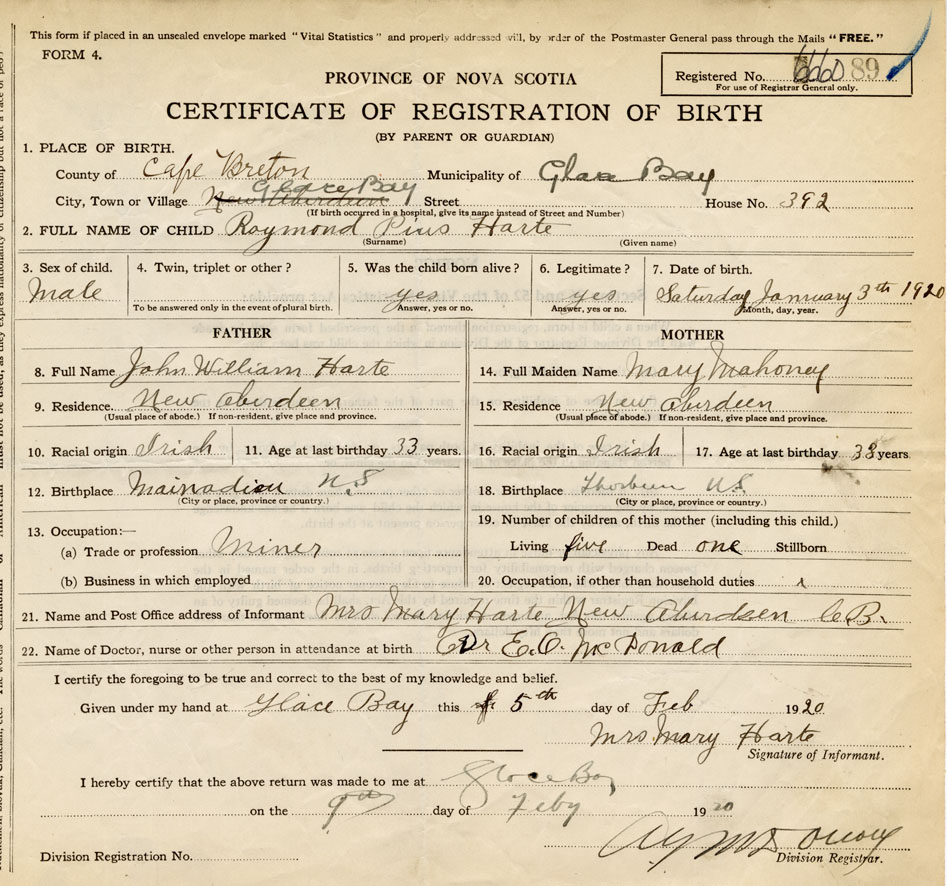 This form if placed in an unsealed envelope marked "Vital Statistics" and properly addressed will, by order of the Postmaster General pass through the Mails "FREE."
FORM 4.
PROVINCE OF NOVA SCOTIA
Registered No. 89
For use of Registrar General only.
CERTIFICATE OF REGISTRATION OF BIRTH
(BY PARENT OR GUARDIAN)
1. PLACE OF BIRTH.
County of Cape Breton Municipality of Glace Bay
City, Town or Village New Aberdeen Glace Bay Street House No. 392
(If birth occurred in a hospital, give its name instead of Street and Number)
2. FULL NAME OF CHILD Raymond Pius Harte
(Surname) (Given name)
3. Sex of child. 4. Twin, triplet or other? 5. Was the child born alive? 6. Legitimate? 7. Date of birth.
Male yes yes Saturday January 3th 1920
To be answered only in the event of plural birth. Answer, yes or no. Answer, yes or no. Month, day, year.
FATHER MOTHER
8. Full Name John William Harte 14. Full Maiden Name Mary Mahoney
9. Residence. New Aberdeen 15. Residence New Aberdeen
(Usual place of abode.) If non-resident, give place and province. (Usual place of abode.) If non-resident, give place and province.
10. Racial origin Irish 11. Age at last birthday 33 years. 16. Racial origin Irish 17. Age at last birthday 33 years
12. Birthplace Mainadieu N.S 18. Birthplace Thorburn N.S.
(City or place, province or country.) (City or place, province or country.)
13. Occupation:— 19. Number of children of this mother (including this child.)
(a) Trade or profession Miner Living five Dead one Stillborn
(b) Business in which employed 20. Occupation, if other than household duties
21. Name and Post Office address of Informant Mrs Mary Harte New Aberdeen C.B.
22. Name of Doctor, nurse or other person in attendance at birth Dr E.O. McDonald
I certify the foregoing to be true and correct to the best of my knowledge and belief.
Given under my hand at Glace Bay this 5th day of Feb 1920
Mrs Mary Harte
Signature of Informant.
I hereby certify that the above return was made to me at Glace Bay
on the 9th day of Feby 1920
Division Registration No. Division Registrar.